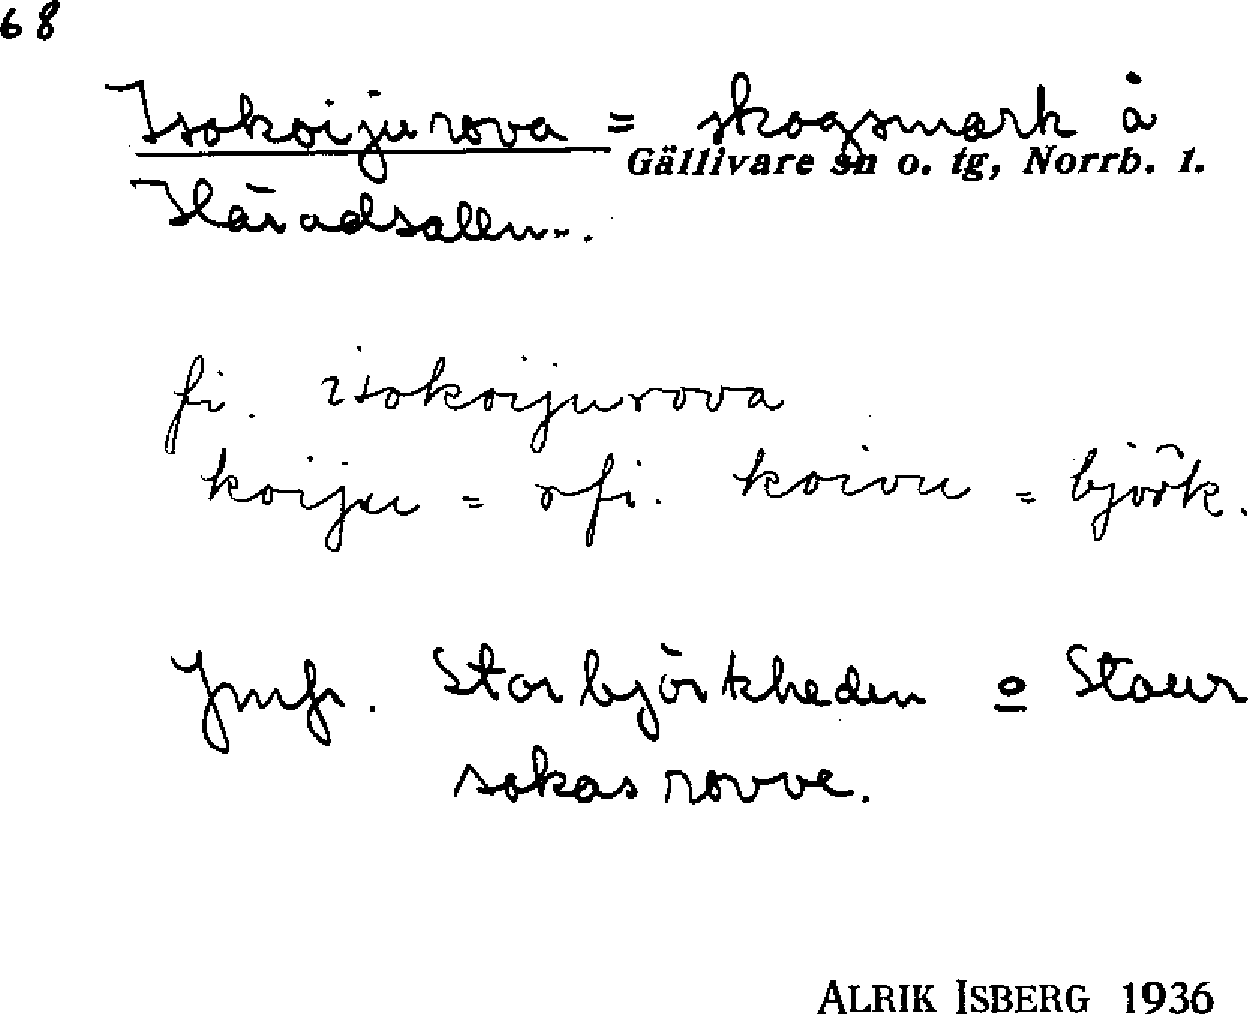 68
Isokoijurova = skogsmark å
Gällivare sn o. tg, Norrb. l.
Häradsallm.
fi. isokoijurova
koiju = rfi. koivu = björk.
Jmfr. Storbjörkheden o Staur
sokasrovve.
ALRIK ISBERG 1936